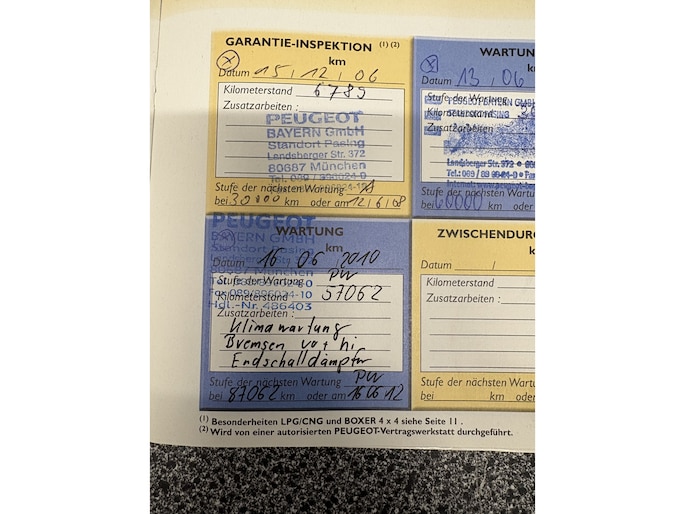 GARANTIE-INSPEKTION (1) (2)
km
Datum 15 / 12 / 06
Kilometerstand 6785
Zusatzarbeiten :
PEUGEOT
BAYERN GmbH
Standort Pasing
Landsberger Str. 372
80687 München
Tel.: 089 /
Stufe der nächsten Wartung A
bei 30000 km oder am 12/6/08
WARTUN
Datum 13 / 06
Stufe der Wartung
PEUGEOT BAYERN GMBH
Kilometerstand
Zusatzarbeiten
Landsberger Str. 372
Tel.: 089 /
Stufe der nächsten Wartung
bei 60000 km oder am
PEUGEOT
BAYERN GMBH
Standort Pasing
Landsberger Str.
80687 München
Fax 089/896024-10
Hdl.-Nr. 486403
WARTUNG
km
Datum 16 / 06 / 2010
Stufe der Wartung PW
Kilometerstand 57062
Zusatzarbeiten :
Klimawartung
Bremsen vo + hi
Endschalldämpfer
Stufe der nächsten Wartung PW
bei 87062 km oder am 16 06 12
ZWISCHENDURC
k
Datum /
Kilometerstand
Zusatzarbeiten :
Stufe der nächsten Wartung
bei km oder am
(1) Besonderheiten LPG/CNG und BOXER 4 x 4 siehe Seite 11 .
(2) Wird von einer autorisierten PEUGEOT-Vertragswerkstatt durchgeführt.